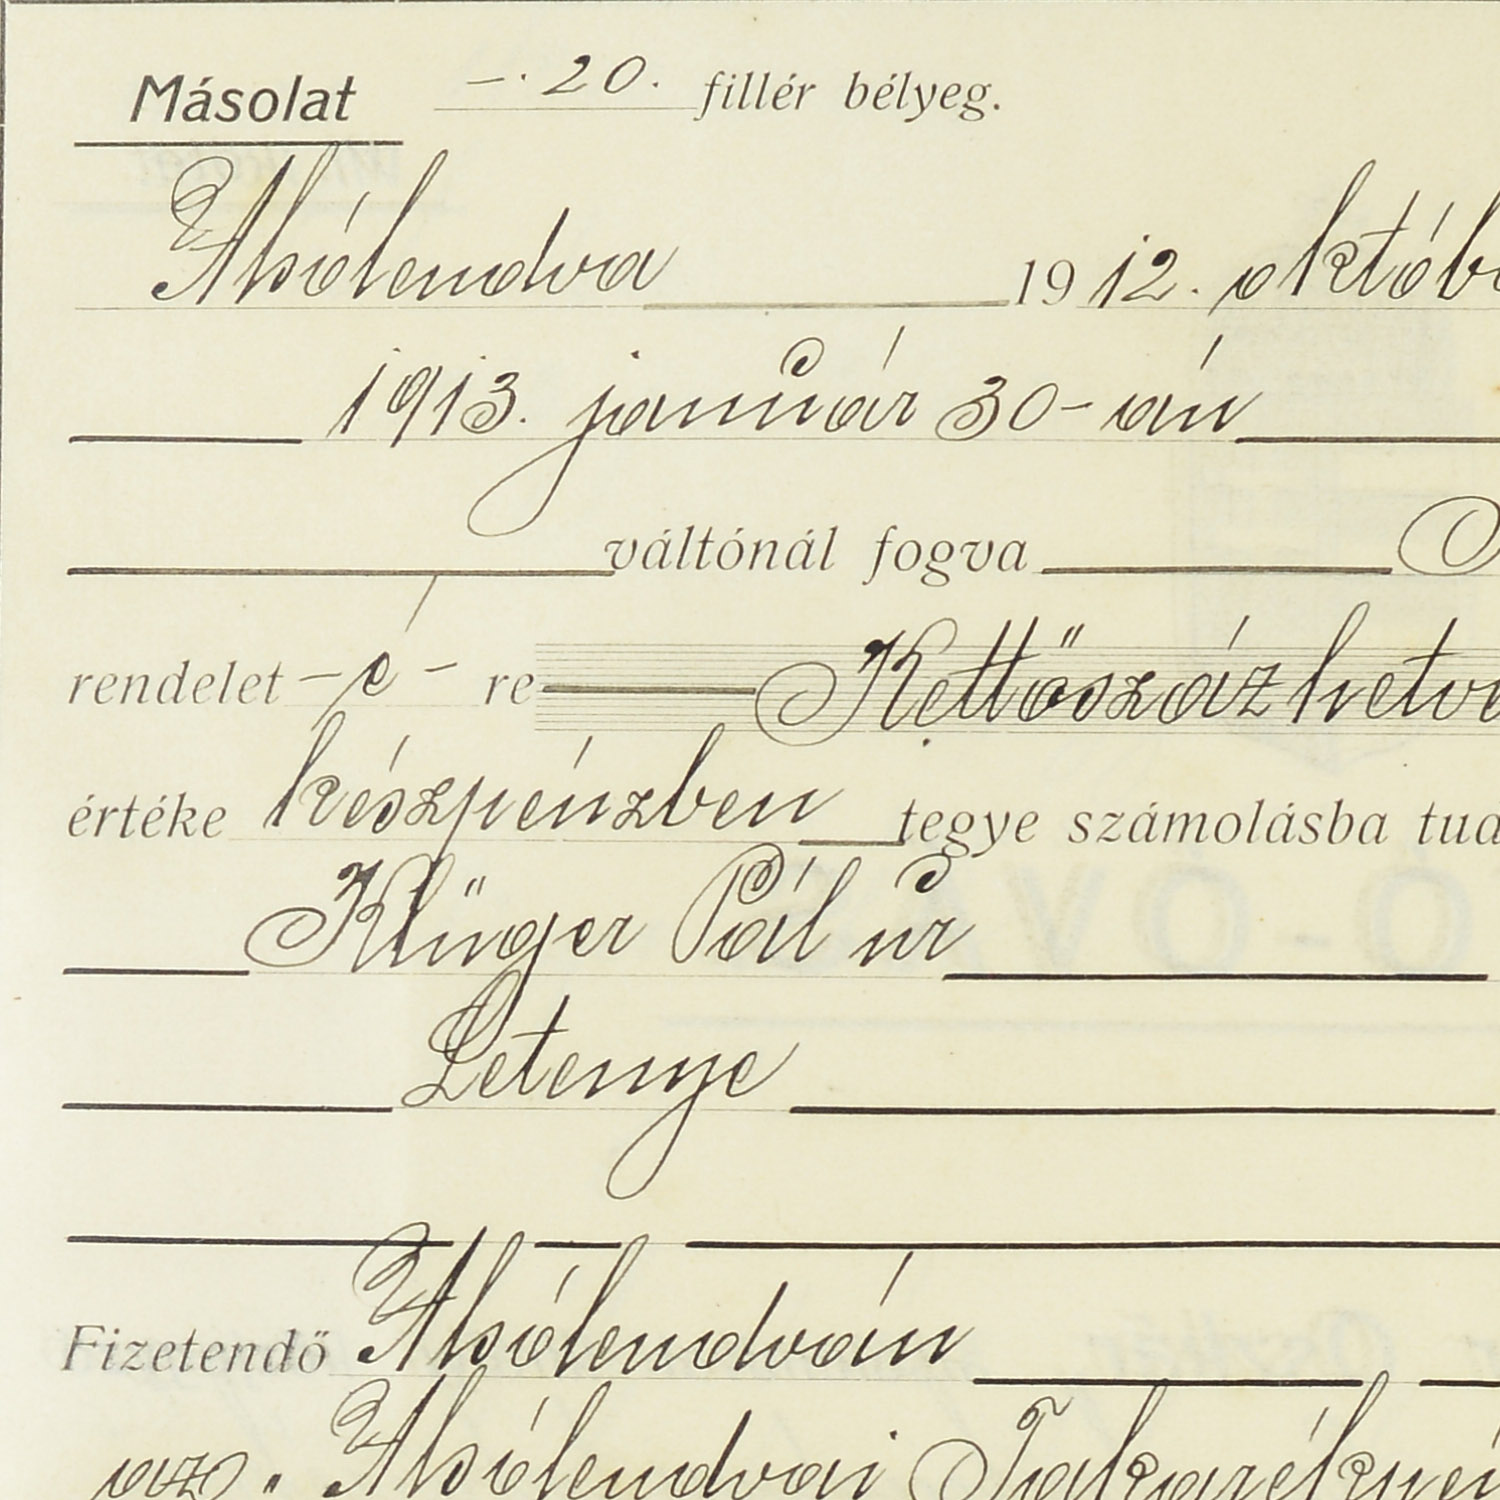 Másolat —. 20. fillér bélyeg.
Alsólendva 1912. októbe
1913. január 30-án
váltónál fogva O
rendelet — é — re Kettőszázhetve
értéke készpénzben tegye számolásba tud
Klüger Pál úr
Letenye
Fizetendő Alsólendván
az. Alsólendvai Takarékpén